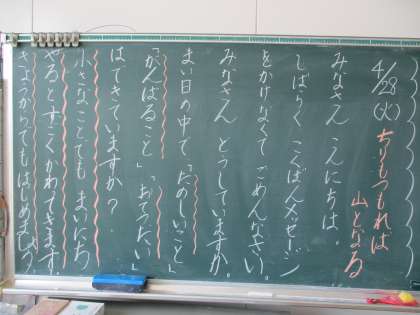 4/28(火) ちりもつもれば
山となる
みなさん こんにちは。
しばらく こくばんメッセージ
をかけなくて ごめんなさい。
みなさん どうしていますか。
まい日の中で「たのしいこと」
「がんばること」「おてつだい」
はできていますか?
小さなことでも まいにち
やるとすごくかわってきます。
きょうからでもはじめましょう。